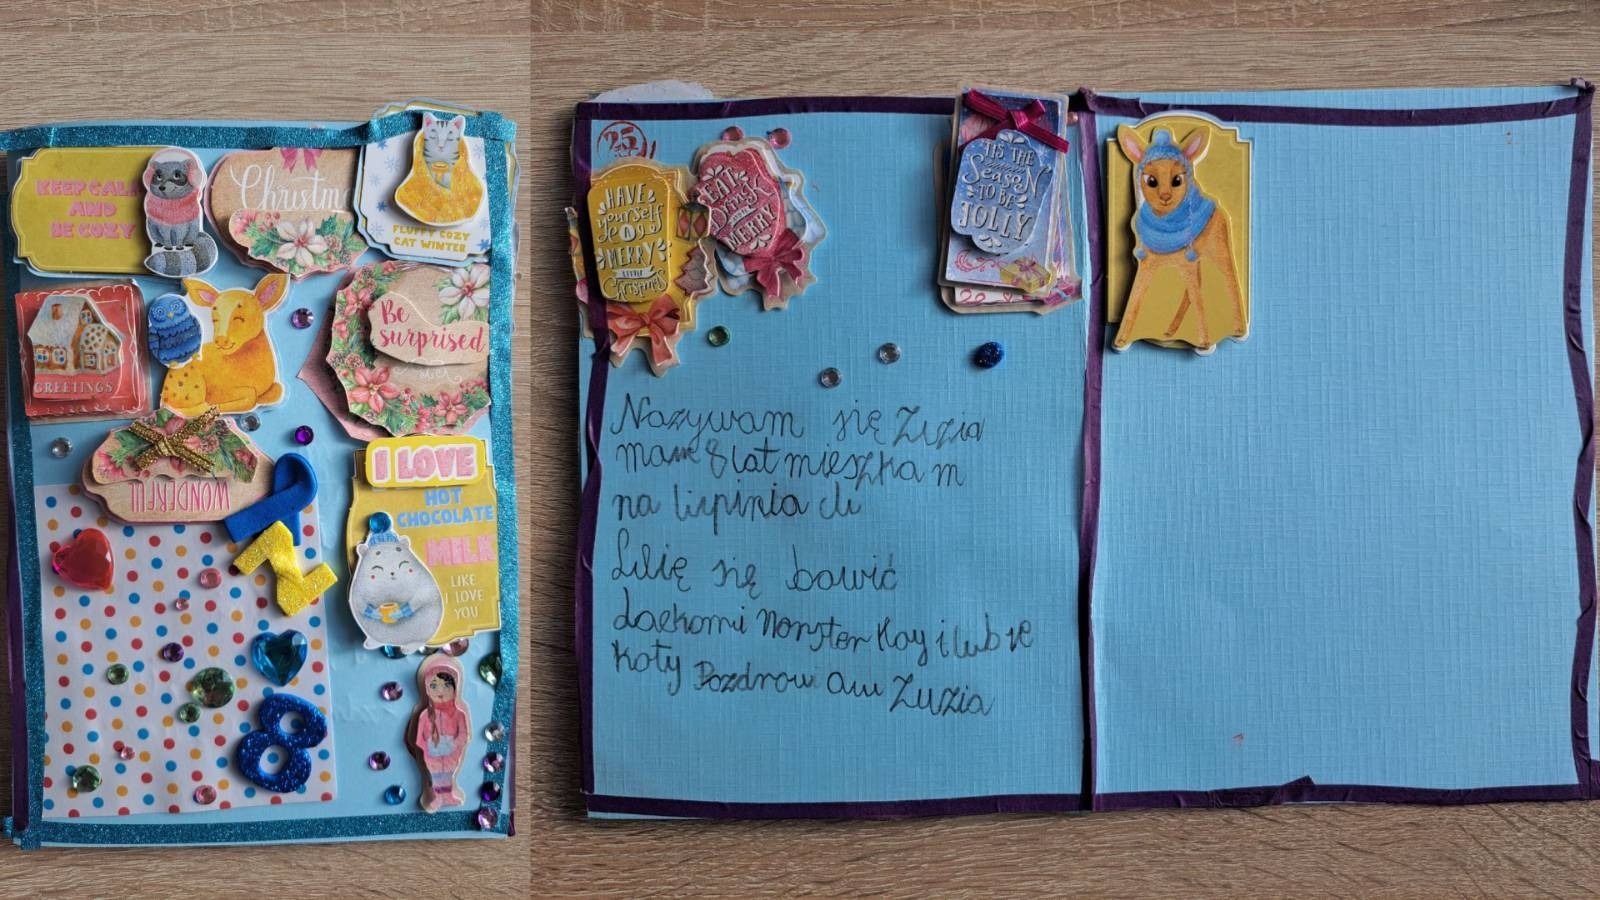 KEEP CALM
AND
BE COZY
Christm
FLUFFY COZY
CAT WINTER
GREETINGS
Be
surprised
WONDERFUL
I LOVE
HOT
CHOCOLATE
MILK
LIKE
I LOVE
YOU
8
25
HAVE
yourself
A
MERRY
LITTLE
Christmas
EAT
Drink
MERRY
'TIS THE
SeaSoN
TO BE
JOLLY
Nazywam się Zuzia
mam 8 lat mieszkam
na Lipinkach
Lubię się bawić
laekami Monster Hay i lubie
koty Pozdrowiam Zuzia